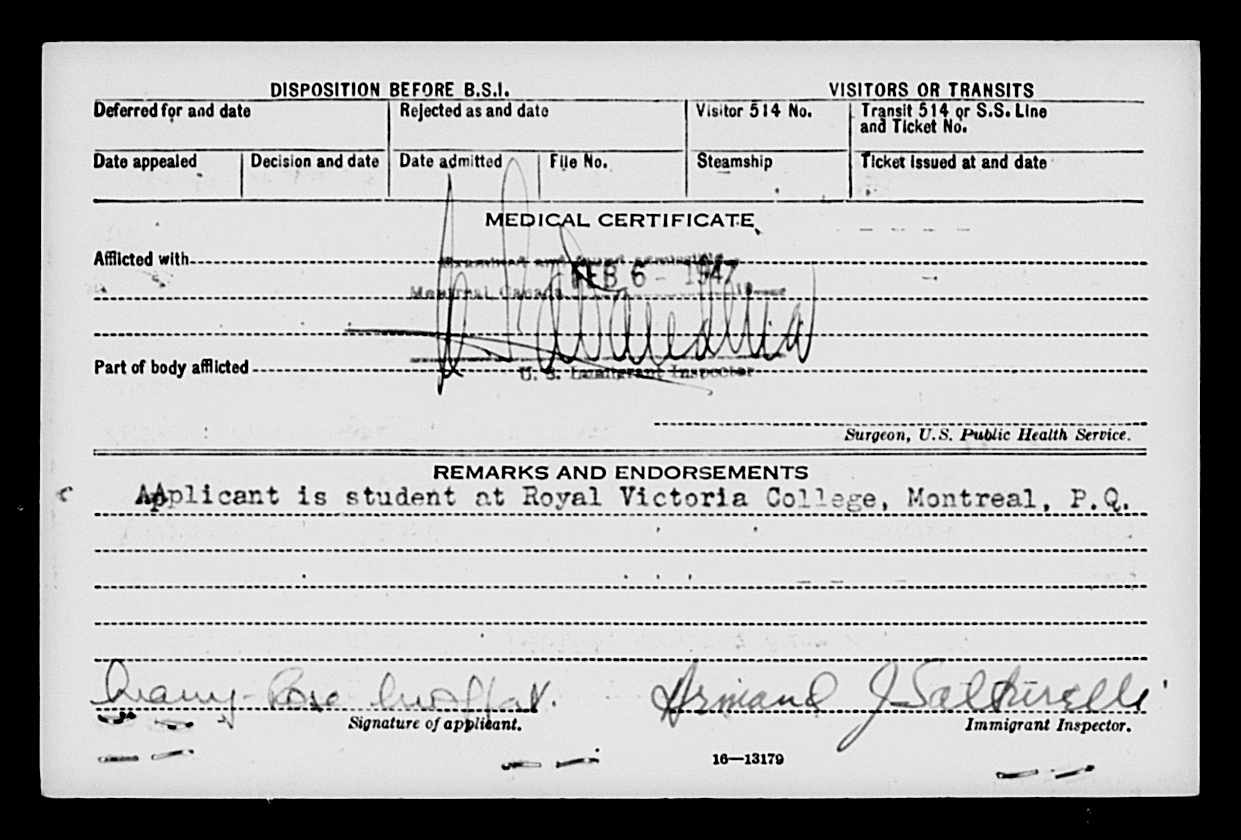 DISPOSITION BEFORE B.S.I. VISITORS OR TRANSITS
Deferred for and date Rejected as and date Visitor 514 No. Transit 514 or S.S. Line and Ticket No.
Date appealed Decision and date Date admitted File No. Steamship Ticket issued at and date
MEDICAL CERTIFICATE
Afflicted with
FEB 6 - 1947
Montreal Canada
Part of body afflicted
U. S. Immigrant Inspector
Surgeon, U.S. Public Health Service.
REMARKS AND ENDORSEMENTS
Applicant is student at Royal Victoria College, Montreal, P.Q.
Mary-Rose Moffat. Armand J
Signature of applicant. Immigrant Inspector.
16—13179